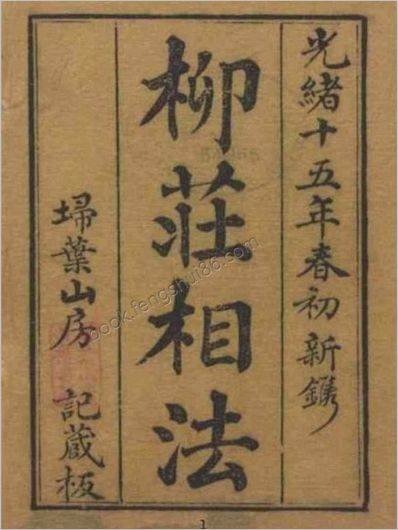 光緒十五年春初新鐫
柳莊相法
埽葉山房 記蔵板
book.fengshui86.com
1